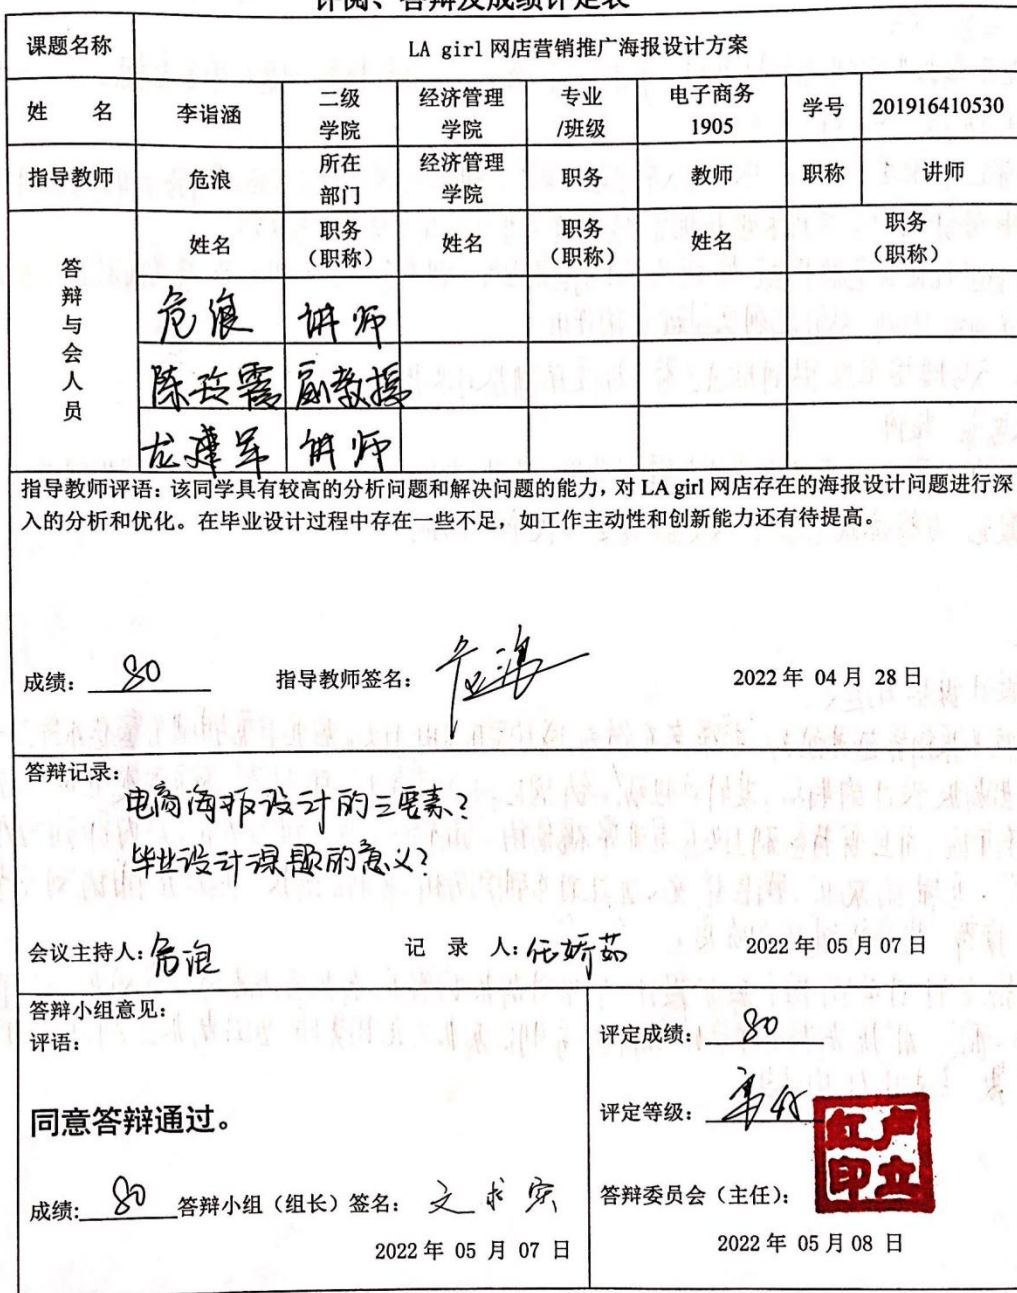 评阅、答辩及成绩评定表
课题名称 LA girl 网店营销推广海报设计方案
姓 名 李诣涵 二级学院 经济管理学院 专业/班级 电子商务1905 学号 201916410530
指导教师 危浪 所在部门 经济管理学院 职务 教师 职称 讲师
答辩与会人员 姓名 职务（职称） 姓名 职务（职称） 姓名 职务（职称）
危浪 讲师
陈玲霞 副教授
龙建军 讲师
指导教师评语：该同学具有较高的分析问题和解决问题的能力，对 LA girl 网店存在的海报设计问题进行深
入的分析和优化。在毕业设计过程中存在一些不足，如工作主动性和创新能力还有待提高。
成绩： 80 指导教师签名： 危浪 2022 年 04 月 28 日
答辩记录：
电商海报设计的三要素？
毕业设计课题的意义？
会议主持人：危浪 记 录 人：任娇茹 2022 年 05 月 07 日
答辩小组意见：
评语：
同意答辩通过。
成绩: 80 答辩小组（组长）签名： 文求实
2022 年 05 月 07 日
评定成绩： 80
评定等级：
答辩委员会（主任）： 卢立红印
2022 年 05 月 08 日